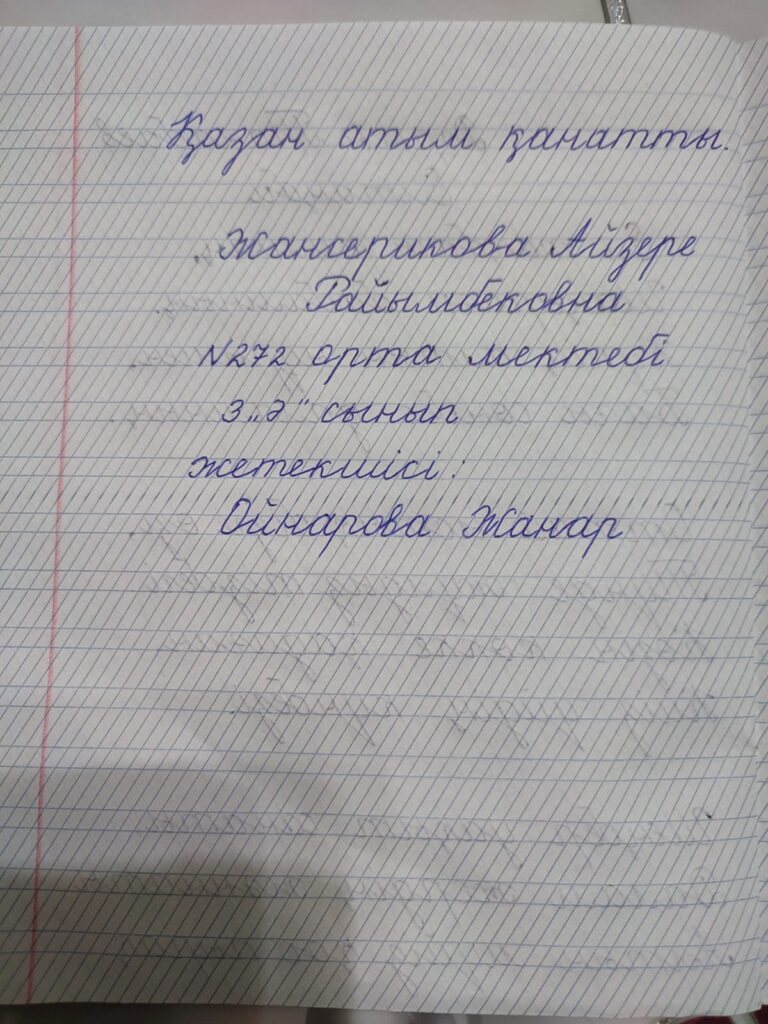 Қазан атым қанатты.
Жансерикова Айзере
Райымбековна
N272 орта мектебі
3 „ә" сынып
жетекшісі:
Ойнарова Жанар